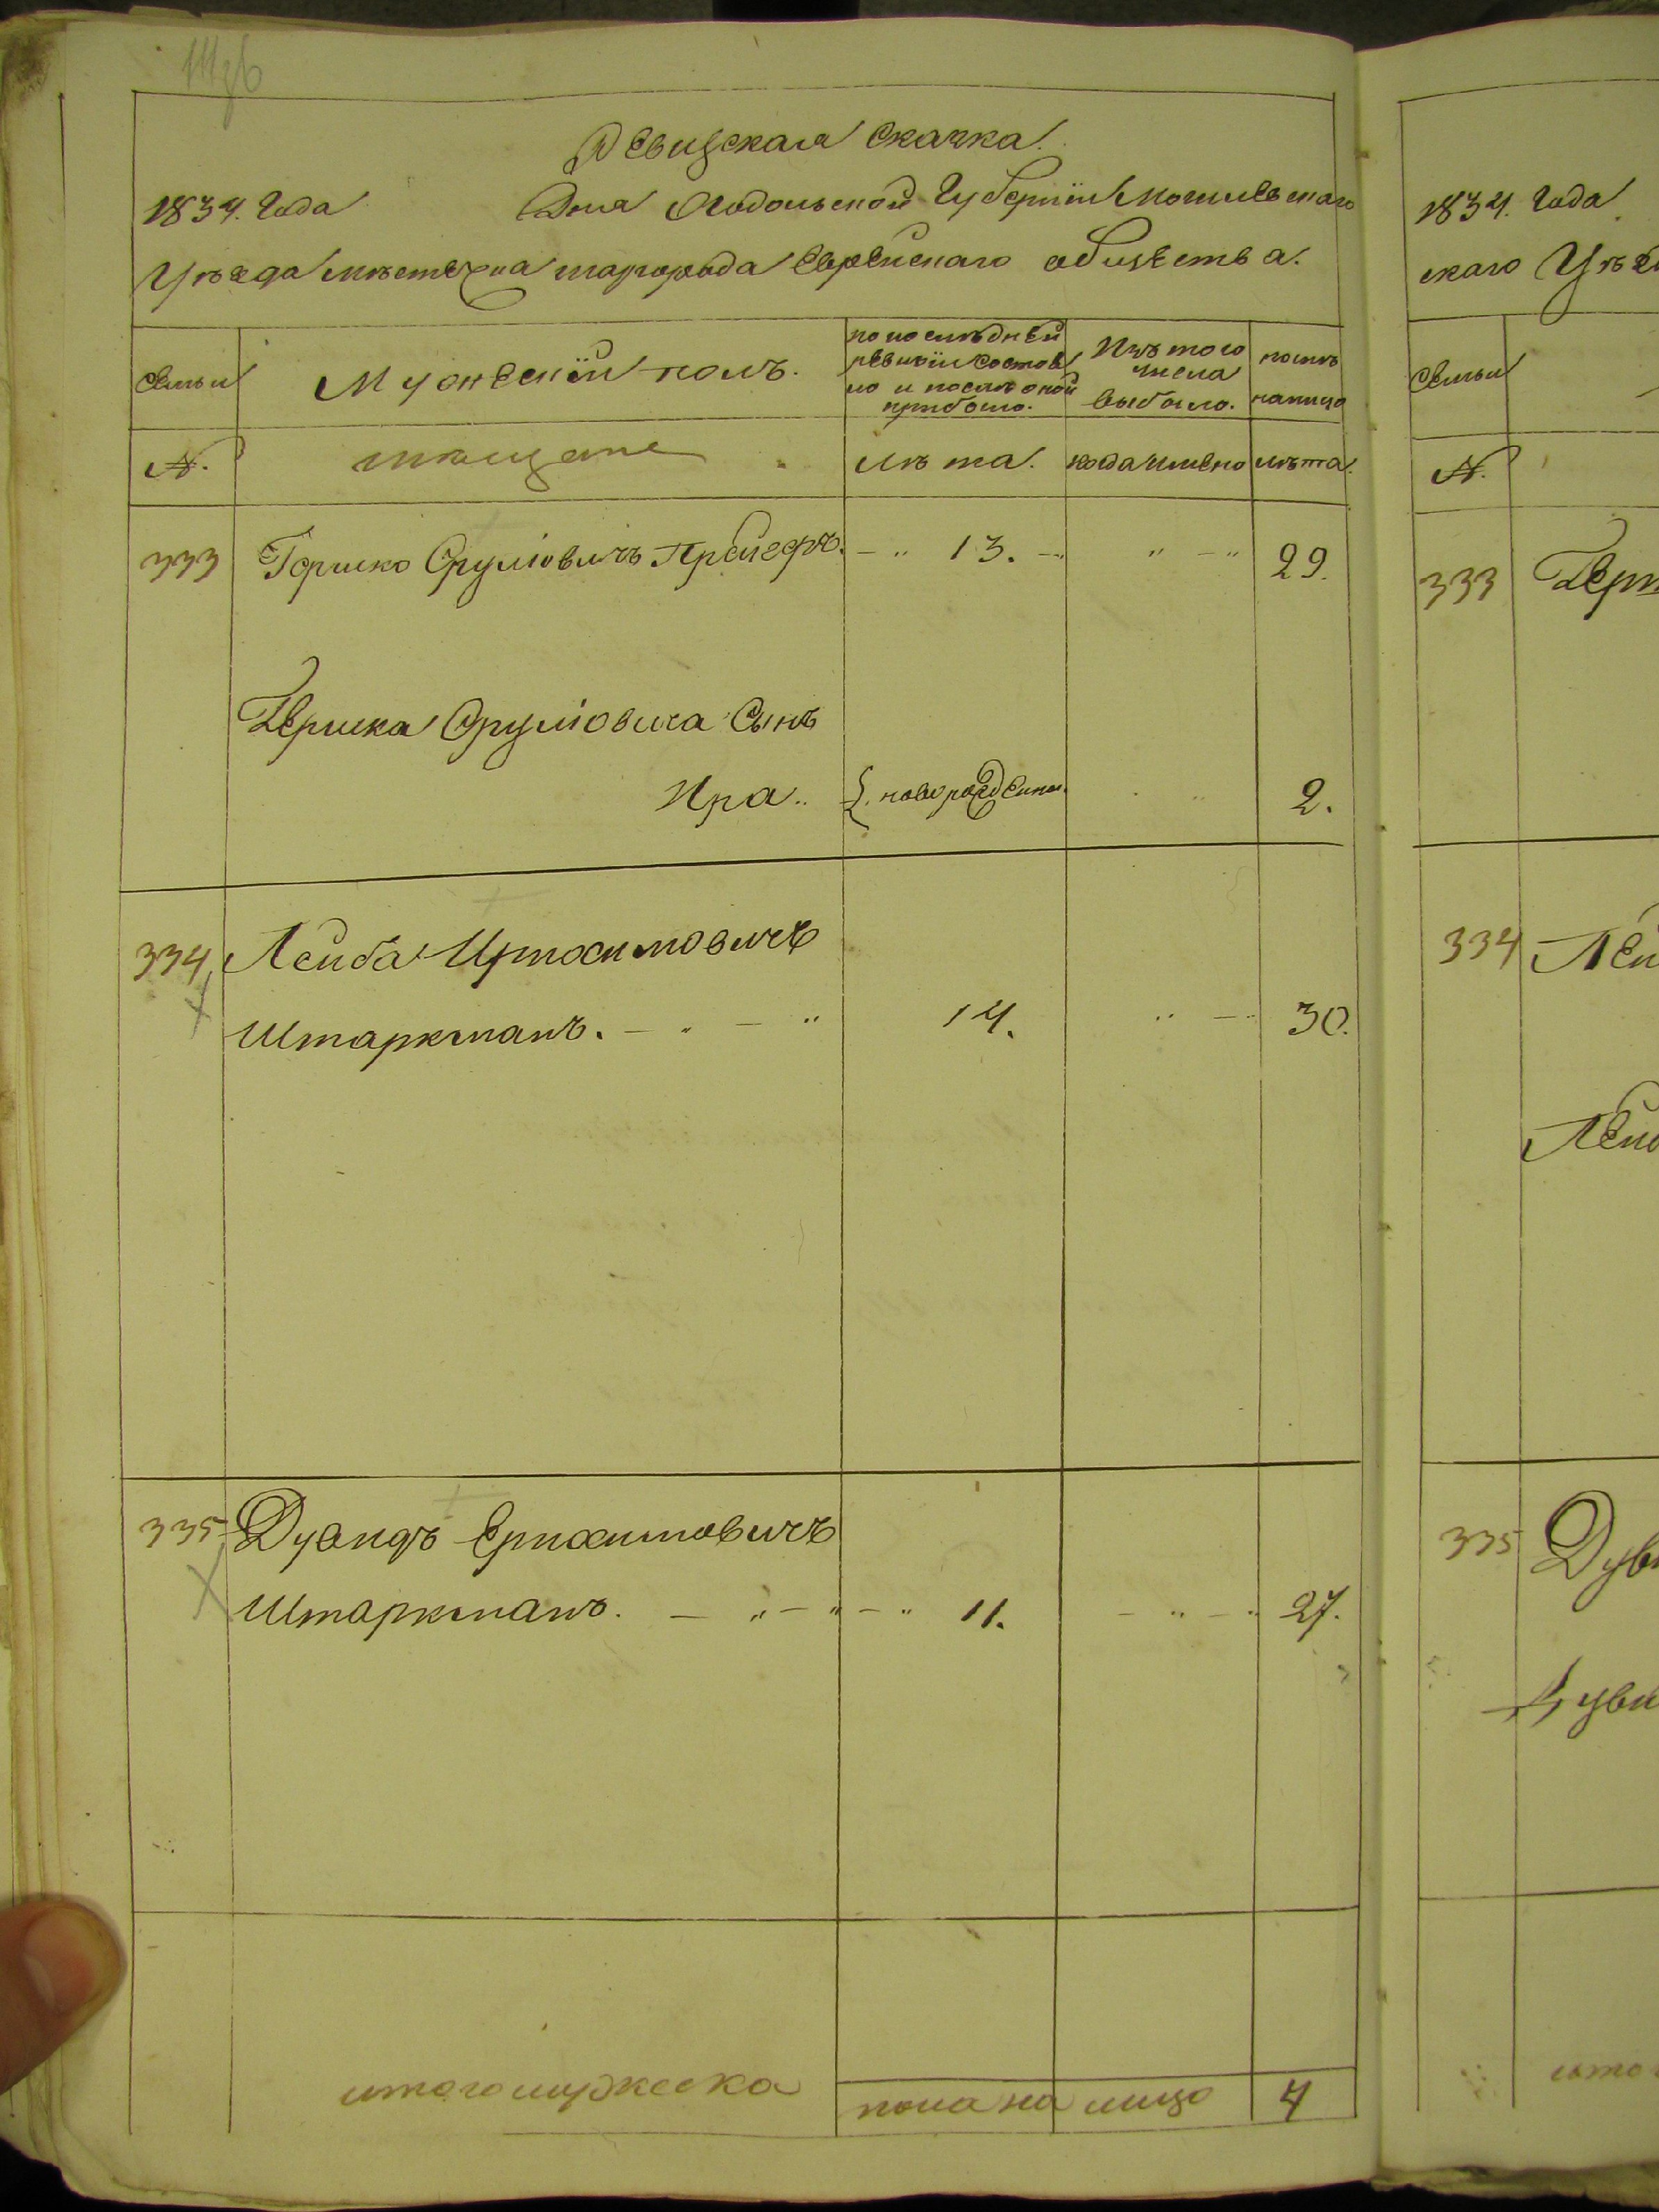 Ревизская Сказка.
1834. Года Дня Подольской Губернїи Могилевскаго
Уѣзда мѣстечка шаргорода Еврейскаго общества.
Семьи
Мужескїй полъ.
по последней ревизїи состояло и после оной прибыло.
Изъ того числа выбыло.
ныне на лицо
N.
мещане
лѣта.
когда имено
лѣта.
333 Гершко Сруліовичъ 13. 29.
Гершка Сруліовича Сынъ
новорожденны 2.
334 Лейба
Штаркманъ. 14. 30.
335 Дувидъ Ерохимовичъ
Штаркманъ. 11. 27.
итого мужеска пола на лицо 4
1834. Года
скаго
Семьи
N.
333
334
335